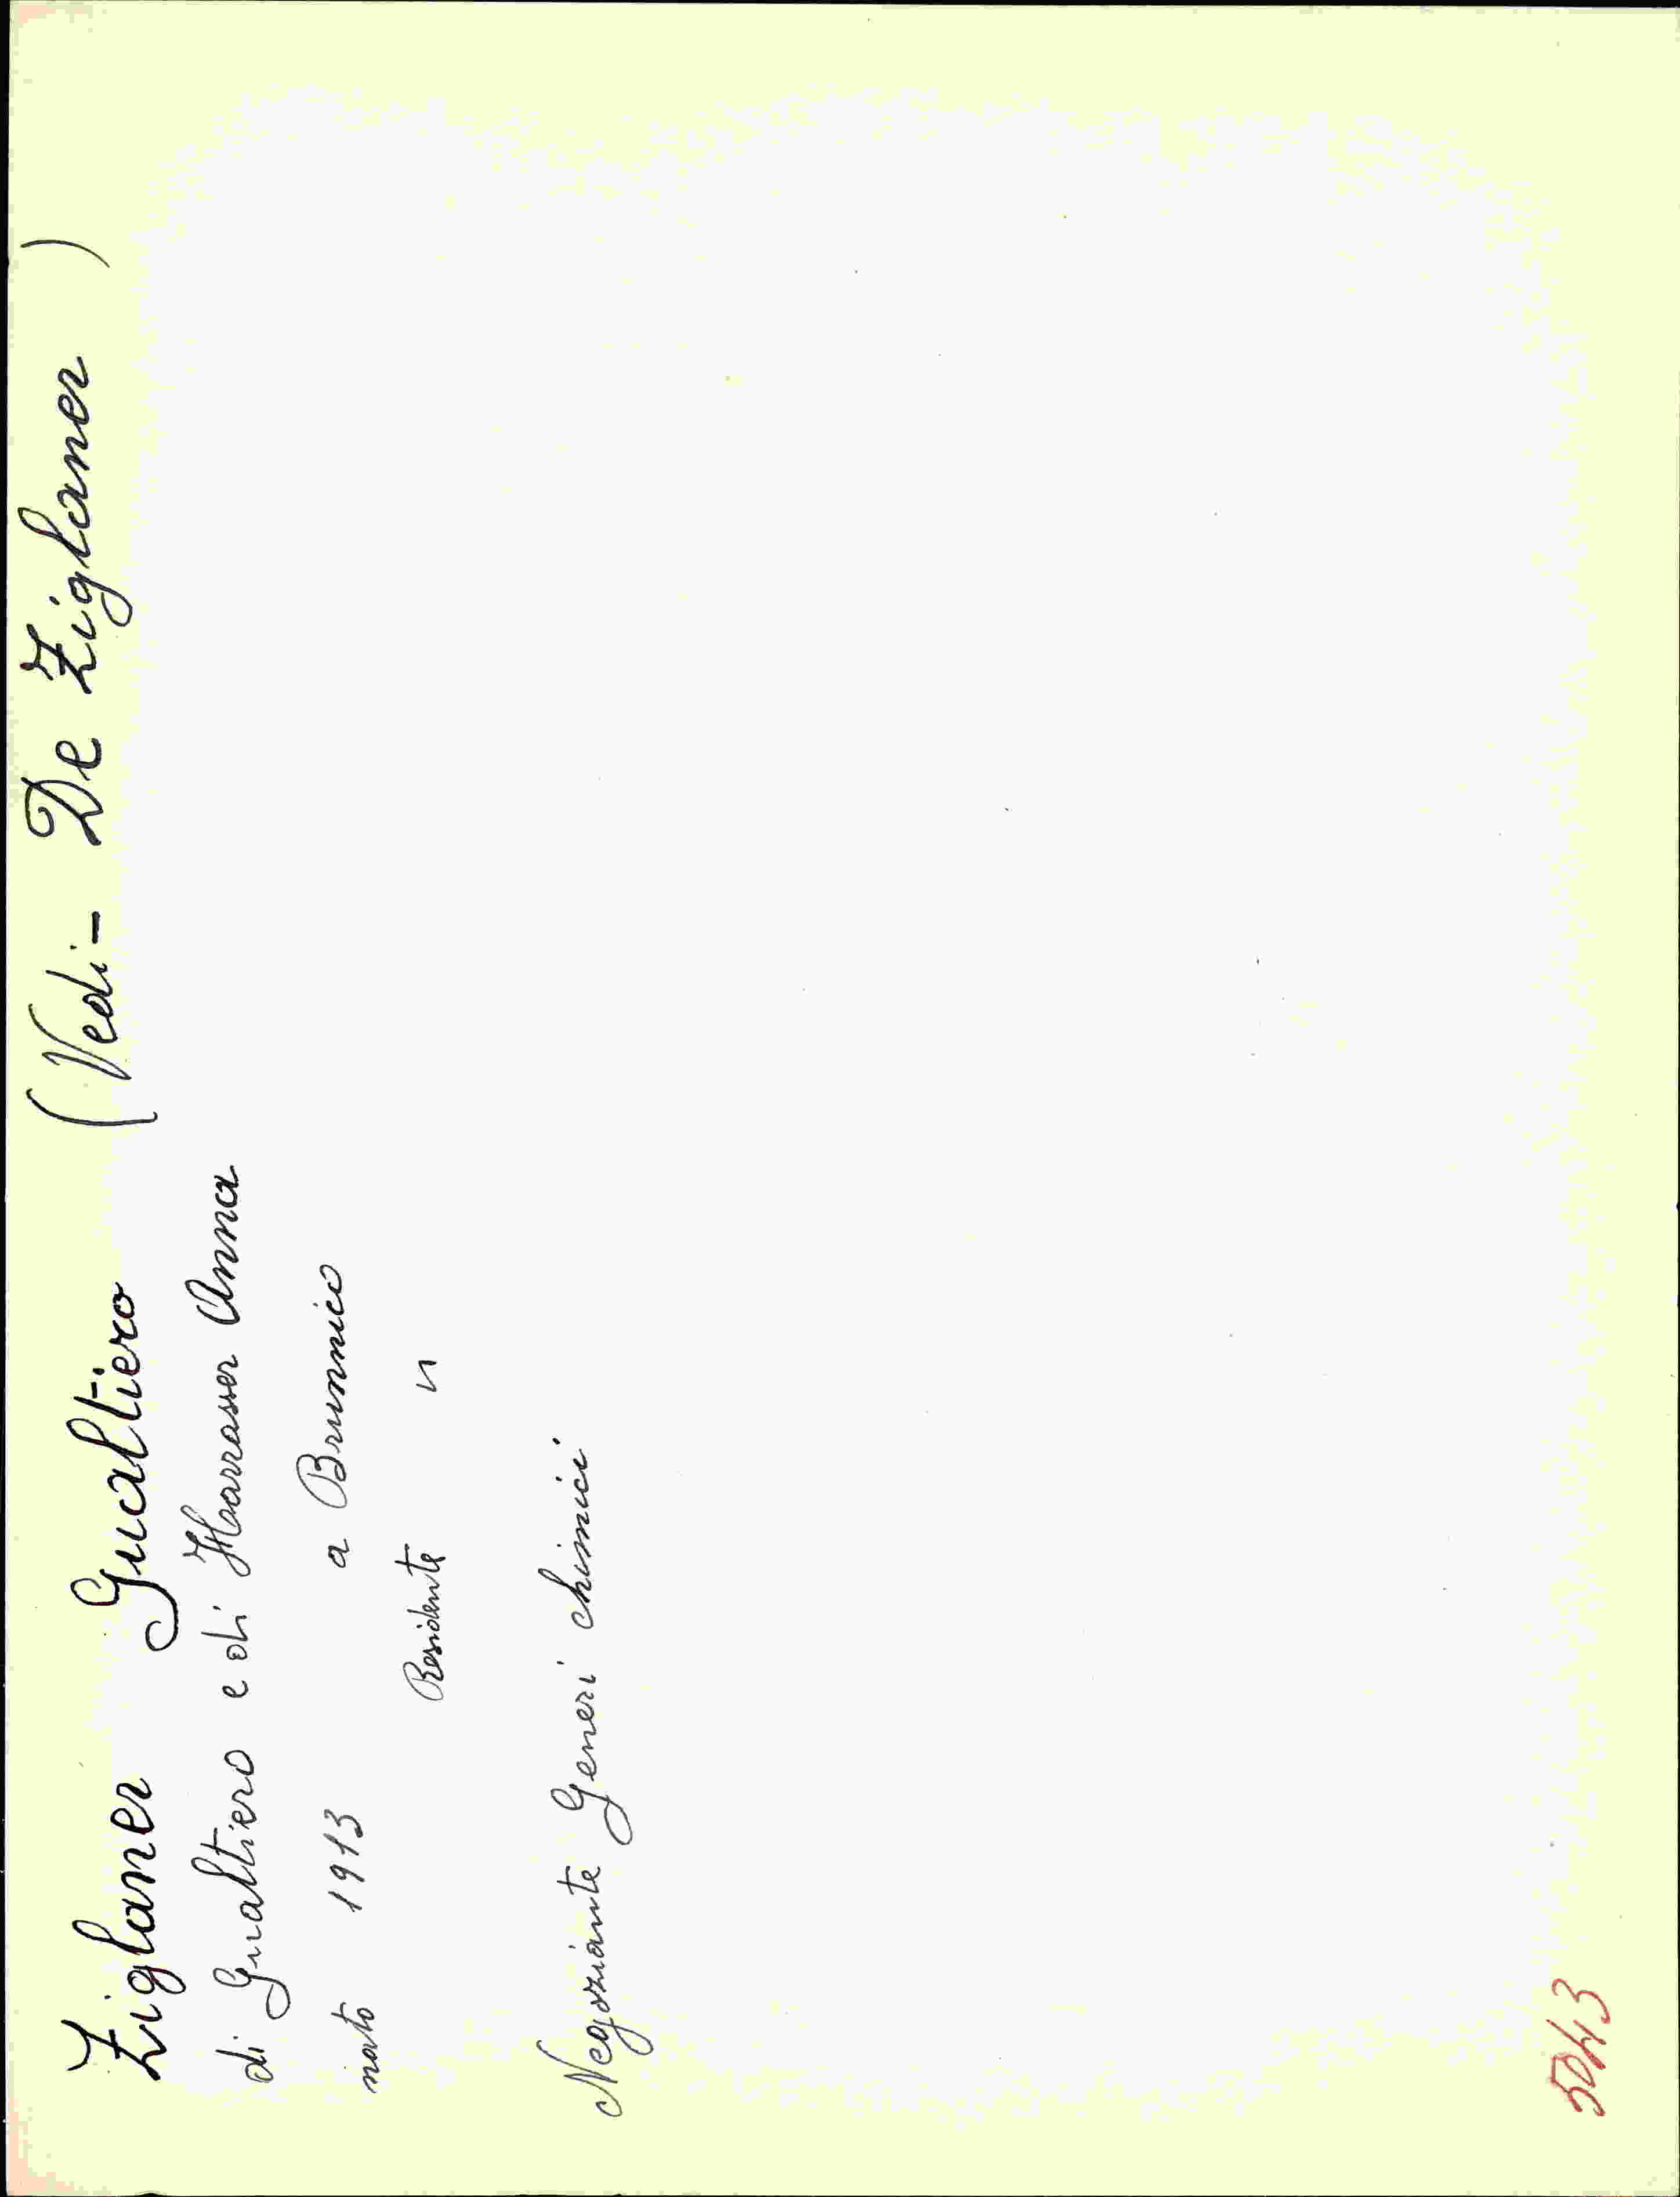 Ziglaner Gualtiero (Vedi - De Ziglaner )
di Gualtiero e di Harrasser Anna
nato 1913 a Brunnico
Residente "
Negoziante Generi chimici
5043